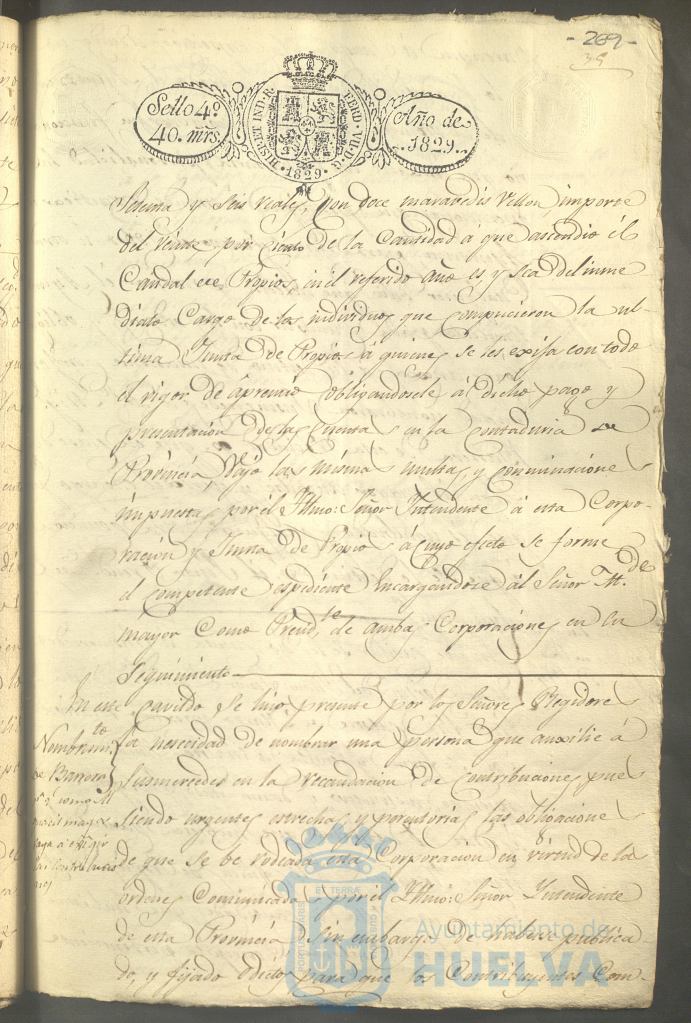 - 269 -
39
Sello 4º
40. mrs
HISP. ET IND. R. FERD. VII. D. G.
1829
Año de
1829.
Setenta y Seis reales, con doce maravedis Vellon importe
del veinte por ciento de la Cantidad á que ascendio él
Caudal de Propios, en él referido año es y sea del inme
diato Cargo de los individuos que compucieron la ul-
tima Junta de Propios á quienes se les exija con todo
el rigor de apremio obligandosele, al dicho pago y
presentacion de las Cuentas en la contaduria de
Provincia, vajo las mismas multas, y conminacione
impuestas, por él Yllmo: Señor Yntendente á esta Corpo-
racion y Junta de Propios á cuyo efecto se forme
el competente espediente Encargandose al Señor Alde
mayor Como Presidte de ambas Corporaciones, en su
Seguimiento
En este cavildo se hizo presente por los Señores Regidores
la necesidad de nombrar una persona que auxilie á
susmercedes en la recaudacion de contribuciones, pues
siendo urgentes estrechas, y perentorias, las obligacione
de que se be rodeada esta Corporacion en virtud de las
ordenes Comunicadas, por él Yllmo: Señor Yntendente
de esta Provincia, sin embargo de haberse publica-
do, y fijado edictos para que los Contribuyentes Com-
Nombramto
de Barrera
Ayuntamiento de
HUELVA